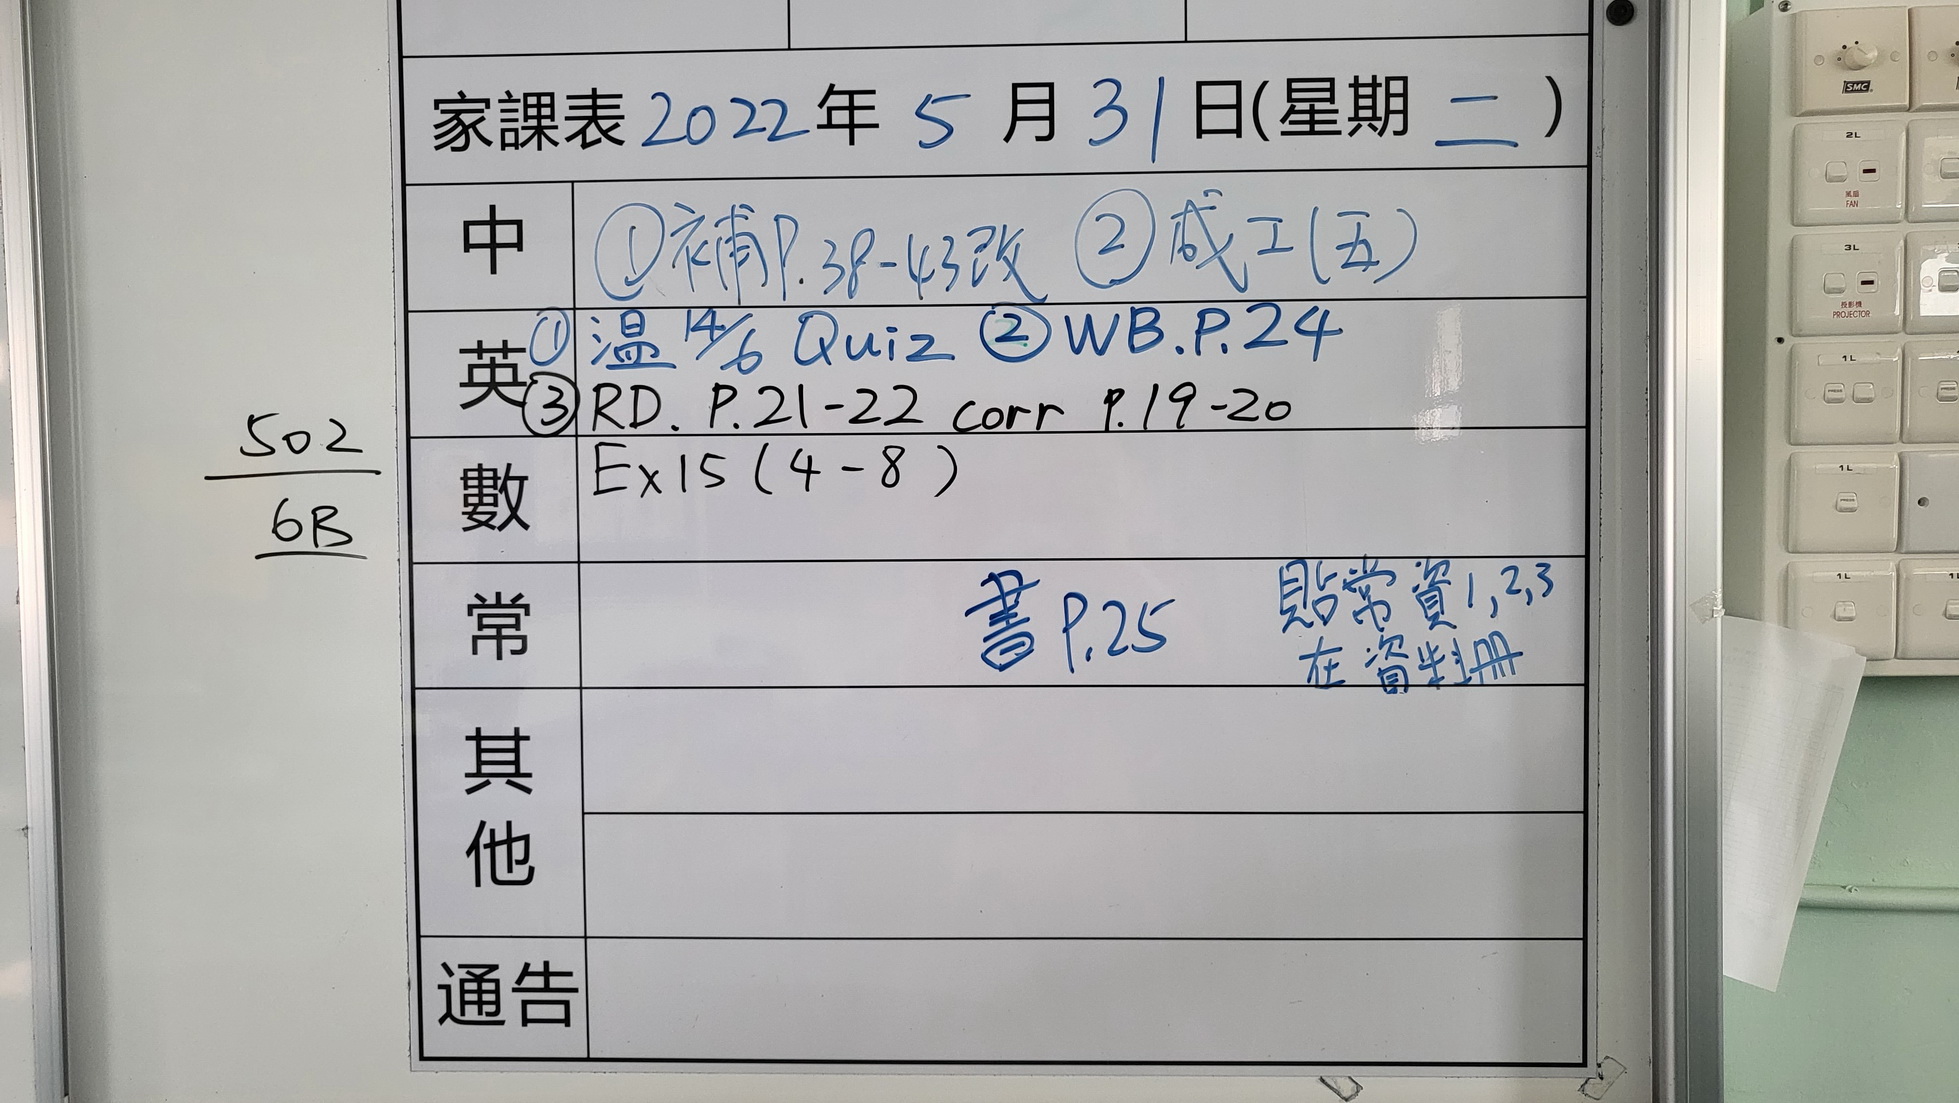 家課表 2022 年 5 月 31 日(星期 二 )
中 ①補P.38-43改 ②成工(五)
英 ①溫 14/6 Quiz ②WB.P.24
③RD. P.21-22 corr P.19-20
數 Ex15(4-8)
常 書 P.25 貼常資1,2,3
在資料冊
其他
通告
502
6B
SMC
2L
風扇
FAN
3L
投影機
PROJECTOR
1L
PRESS
1L
PRESS
1L